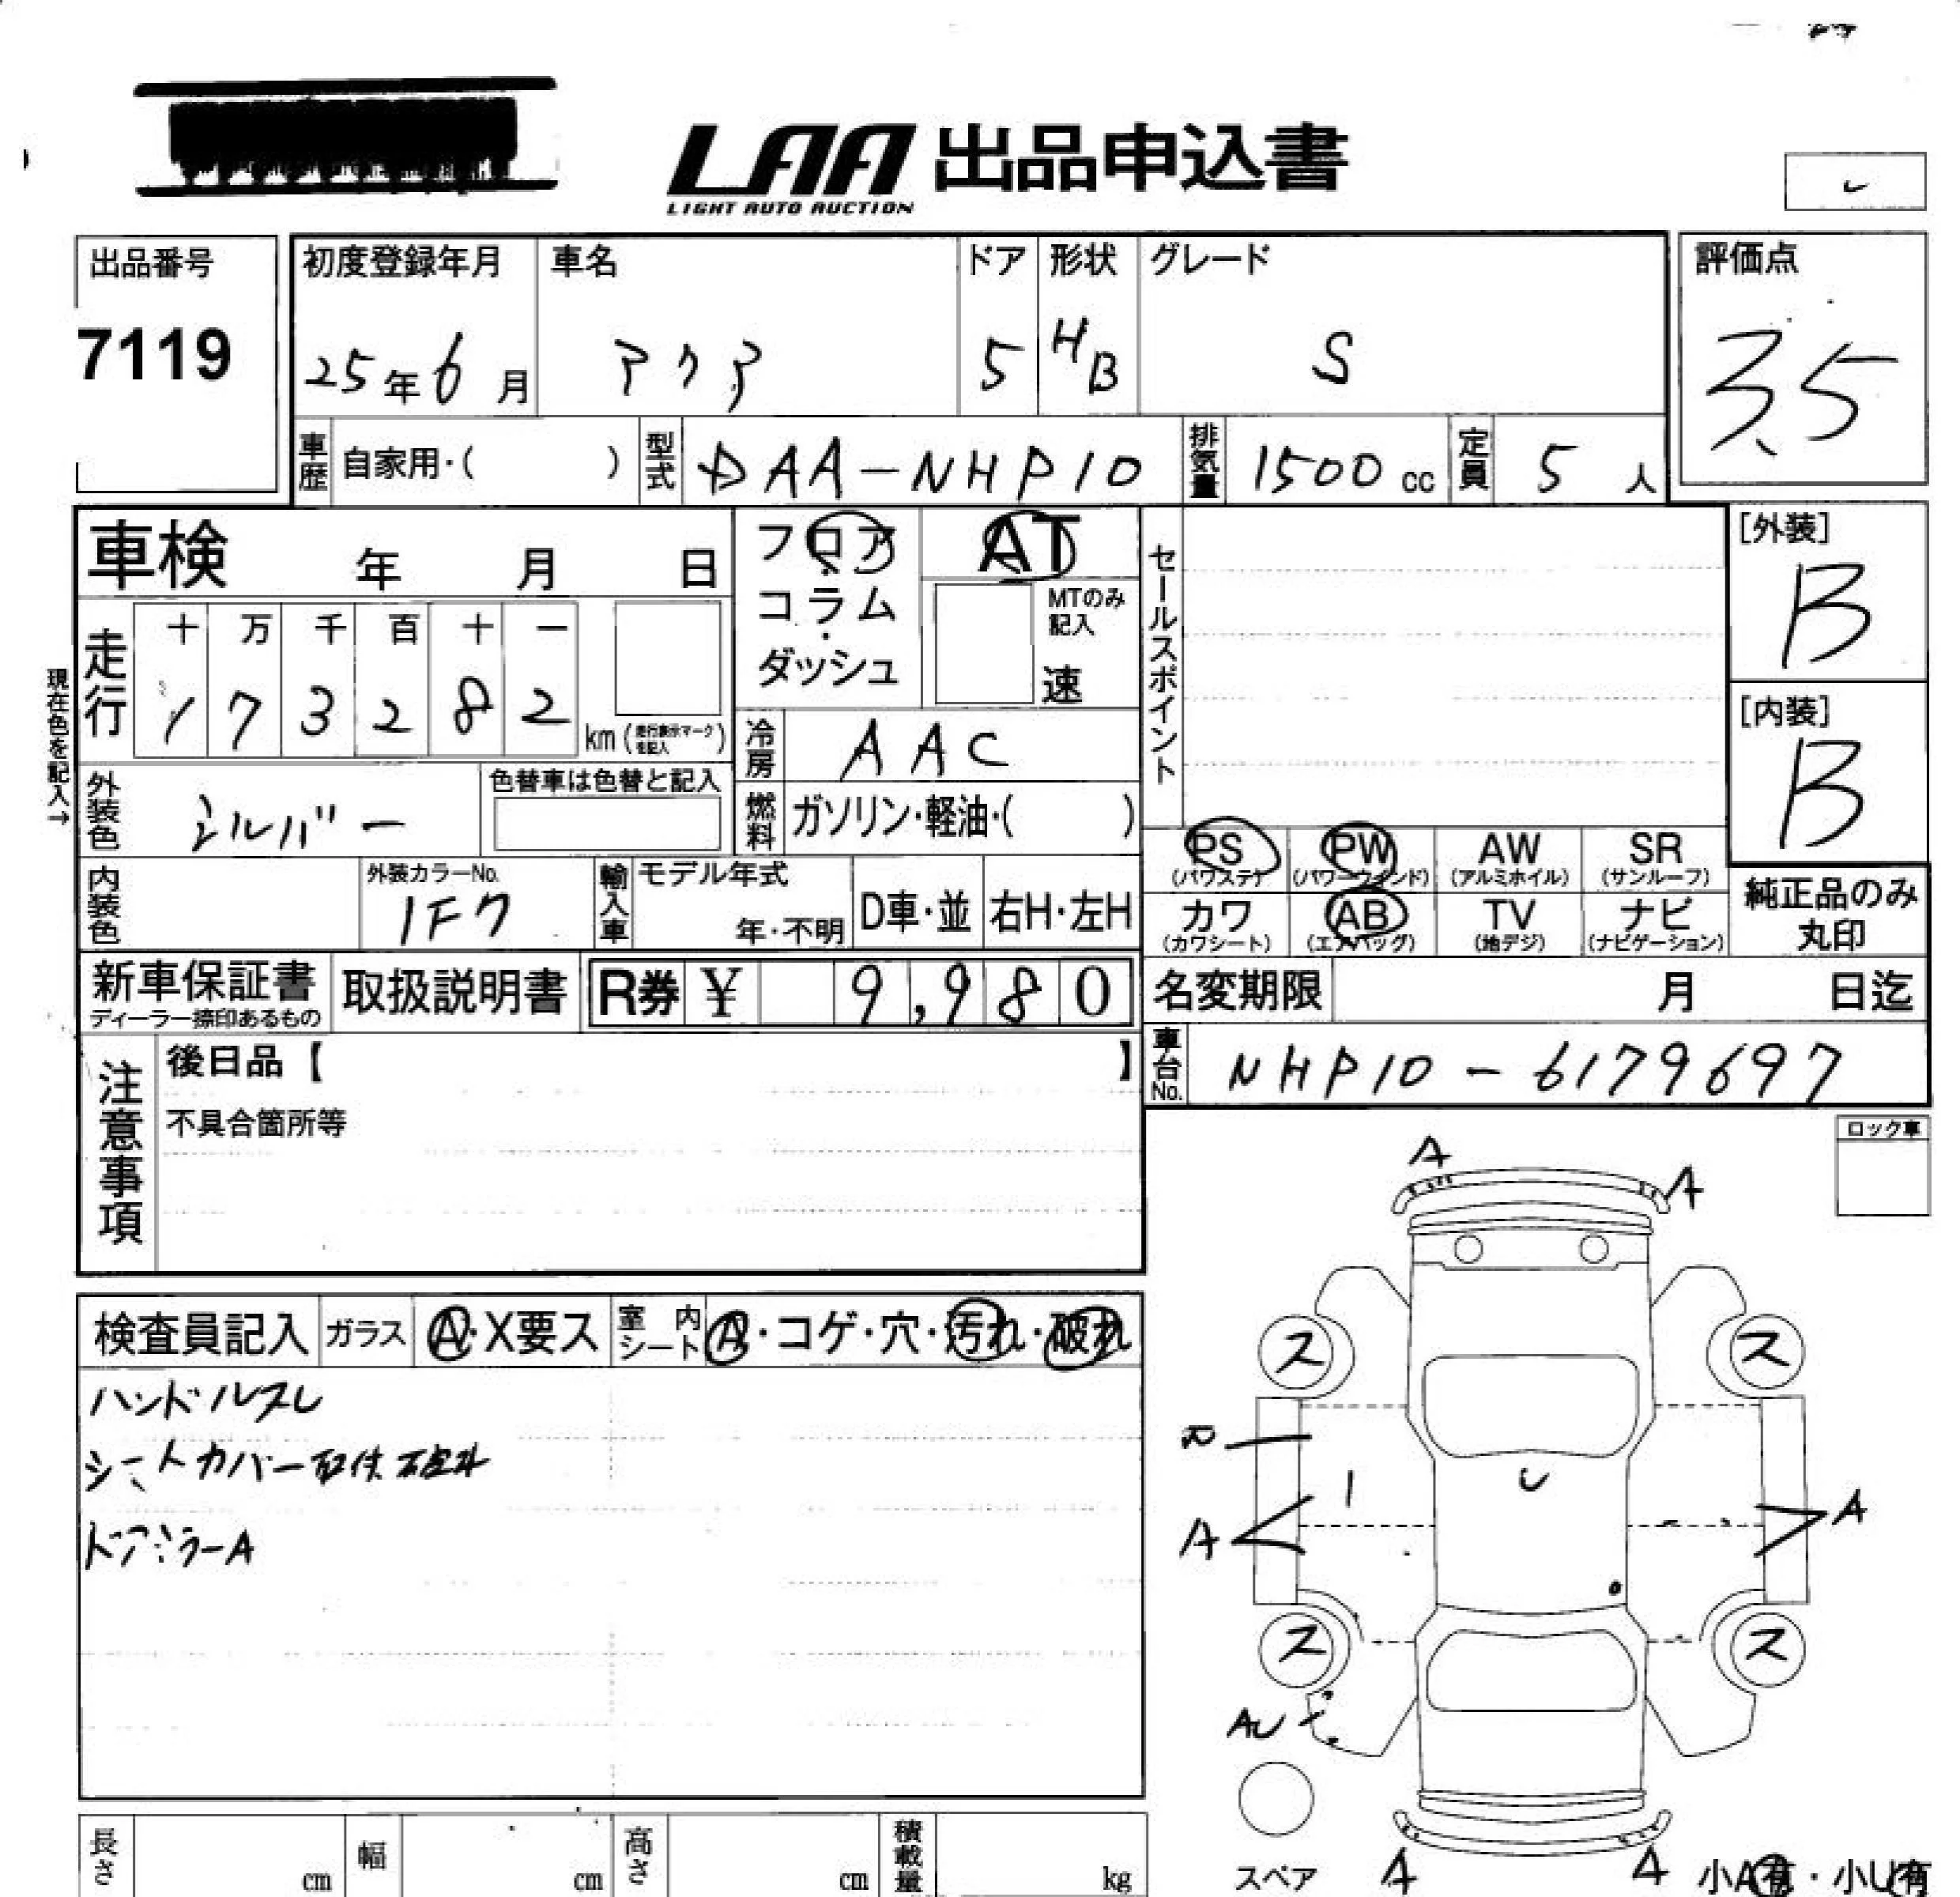 LAA 出品申込書
LIGHT AUTO AUCTION
出品番号 初度登録年月 車名 ドア 形状 グレード 評価点
7119 25年6月 アクア 5 HB S 3.5
車歴 自家用・( ) 型式 DAA-NHP10 排気量 1500cc 定員 5人
車検 年 月 日 フロア AT [外装]
コラム MTのみ記入 B
ダッシュ 速
セールスポイント
現在色を記入→
走行 十 万 千 百 十 一
1 7 3 2 8 2 km (走行表示マークを記入)
[内装]
B
冷房 AAC
外装色 シルバー 色替車は色替と記入 燃料 ガソリン・軽油・( )
PS PW AW SR
(パワステ) (パワーウインド) (アルミホイル) (サンルーフ)
内装色 外装カラーNo. 1F7 輸入車 モデル年式 年・不明 D車・並 右H・左H
カワ AB TV ナビ 純正品のみ
(カワシート) (エアバッグ) (地デジ) (ナビゲーション) 丸印
新車保証書 取扱説明書 R券 ¥ 9,980 名変期限 月 日迄
ディーラー捺印あるもの
注意事項 後日品【 】 車台No. NHP10-6179697
不具合箇所等
ロック車
A
A
検査員記入 ガラス A・X要ス 室内シート A・コゲ・穴・汚れ・破れ
ス ス
ハンドルスレ
シートカバー取付
ドアミラーA
U
A A
ス ス
AU
スペア A A 小A有・小U有
長さ cm 幅 cm 高さ cm 積載量 kg